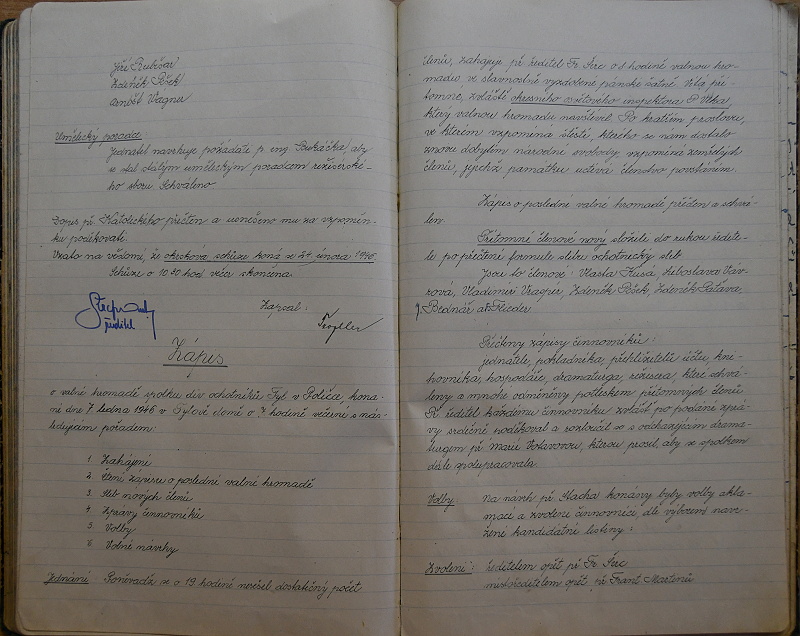 Jiří Rubišar
Zdeněk Pešek
Arnošt Vagner
Umělecký poradce
Jednatel navrhuje požádati p. ing. aby
se stal stálým uměleckým poradcem režisérské-
ho sboru. Schváleno
Dopis př. Katoleckého přečten a usneseno mu za vzpomín-
ku poděkovati.
Vzato na vědomí, že okrsková schůze koná se 24. února 1946.
Schůze o 10 30 hod. večer skončena.
ředitel
Zapsal:
Zápis
o valné hromadě spolku div. ochotníků Tyl v Poličce, kona-
né dne 7 ledna 1946 v Tylově domě o 7 hodině večerní s nás-
ledujícím pořadem:
1. Zahájení
2. Čtení zápisu o poslední valné hromadě
3. Slib nových členů
4. Zprávy činovníků
5. Volby
6. Volné návrhy
Jednání Poněvadž se o 19 hodině nesešel dostatečný počet
členů, zahajuje př. ředitel Fr. Šrc o 8 hodině valnou hro-
madu ve slavnostně vyzdobené pánské šatně. Vítá pří-
tomné, zvláště okresního osvětového inspektora P. Vlka,
který valnou hromadu navštívil. Po krátkém proslovu,
ve kterém vzpomíná štěstí, kterého se nám dostalo
znovu dobytím národní svobody, vzpomíná zemřelých
členů, jejichž památku uctívá členstvo povstáním.
Zápis o poslední valné hromadě přečten a schvá-
len.
Přítomní členové noví složili do rukou ředite-
le po přečtení formule slibu ochotnický slib
Jsou to členové: Vlasta Kusá, Luboslava Váv-
rová, Vladimír Zdeněk Pešek, Zdeněk Satava
J. Bednář a Flieder
Přečteny zápisy činovníků:
jednatele, pokladníka, přehlížitelů účtů, kni-
hovníka, hospodáře, dramaturga, režiséra, které schvá-
leny a mnohé odměněny potleskem přítomných členů
Př. ředitel každému činovníku zvlášť po podání zprá-
vy srdečně poděkoval a rozloučil se s odcházejícím drama-
turgem př. Marií Votavovou, kterou prosil, aby se spolkem
dále spolupracovala.
Volby: Na návrh př. Stacha konány byly volby akla-
mací a zvoleni činovníci, dle výborem navr-
žené kandidátní listiny:
Zvoleni: ředitelem opět př. Fr. Šrc
místoředitelem opět př. Frant. Martinů